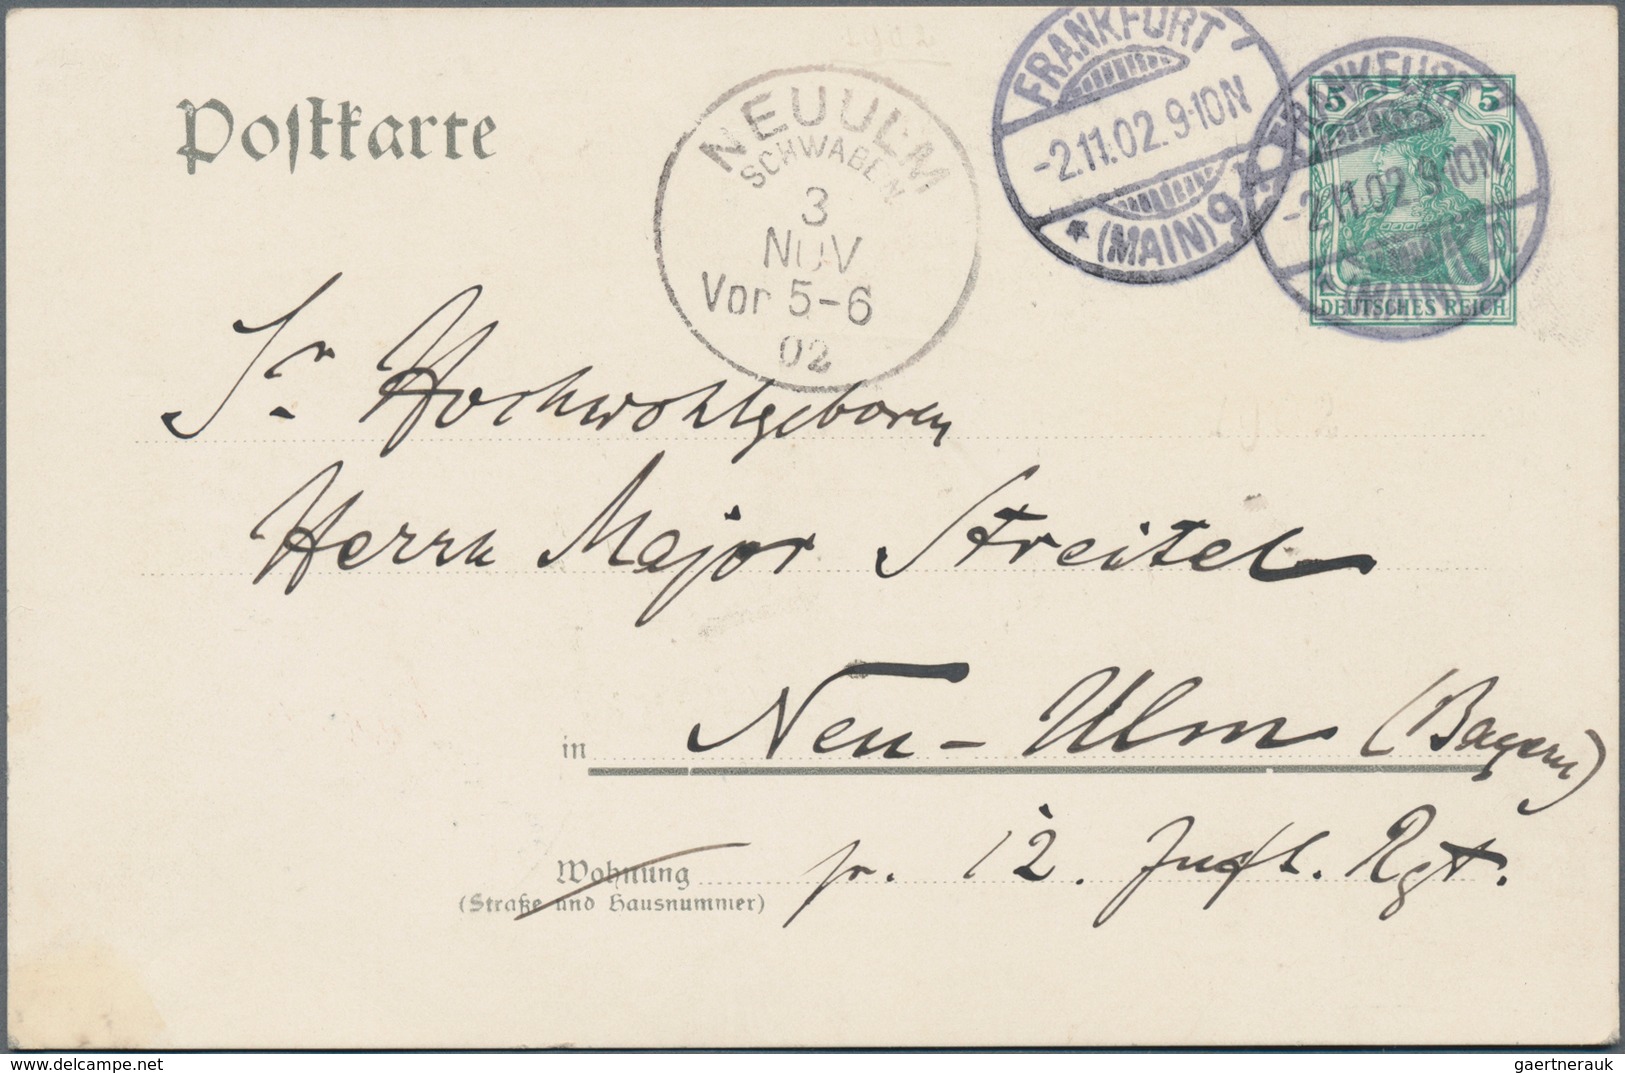 Postkarte
NEUULM
SCHWABEN
3
NOV
Vor 5-6
02
FRANKFURT
-2.11.02.9-10N
* (MAIN) 9
FRANKFURT
-2.11.02.9-10N
(MAIN)
5 5
DEUTSCHES REICH
Sr. Hochwohlgeboren
Herrn Major Streitel
in Neu-Ulm (Bayern)
Wohnung
(Straße und Hausnummer)
pr. 12. Inft. Rgt.
gaertnerauk